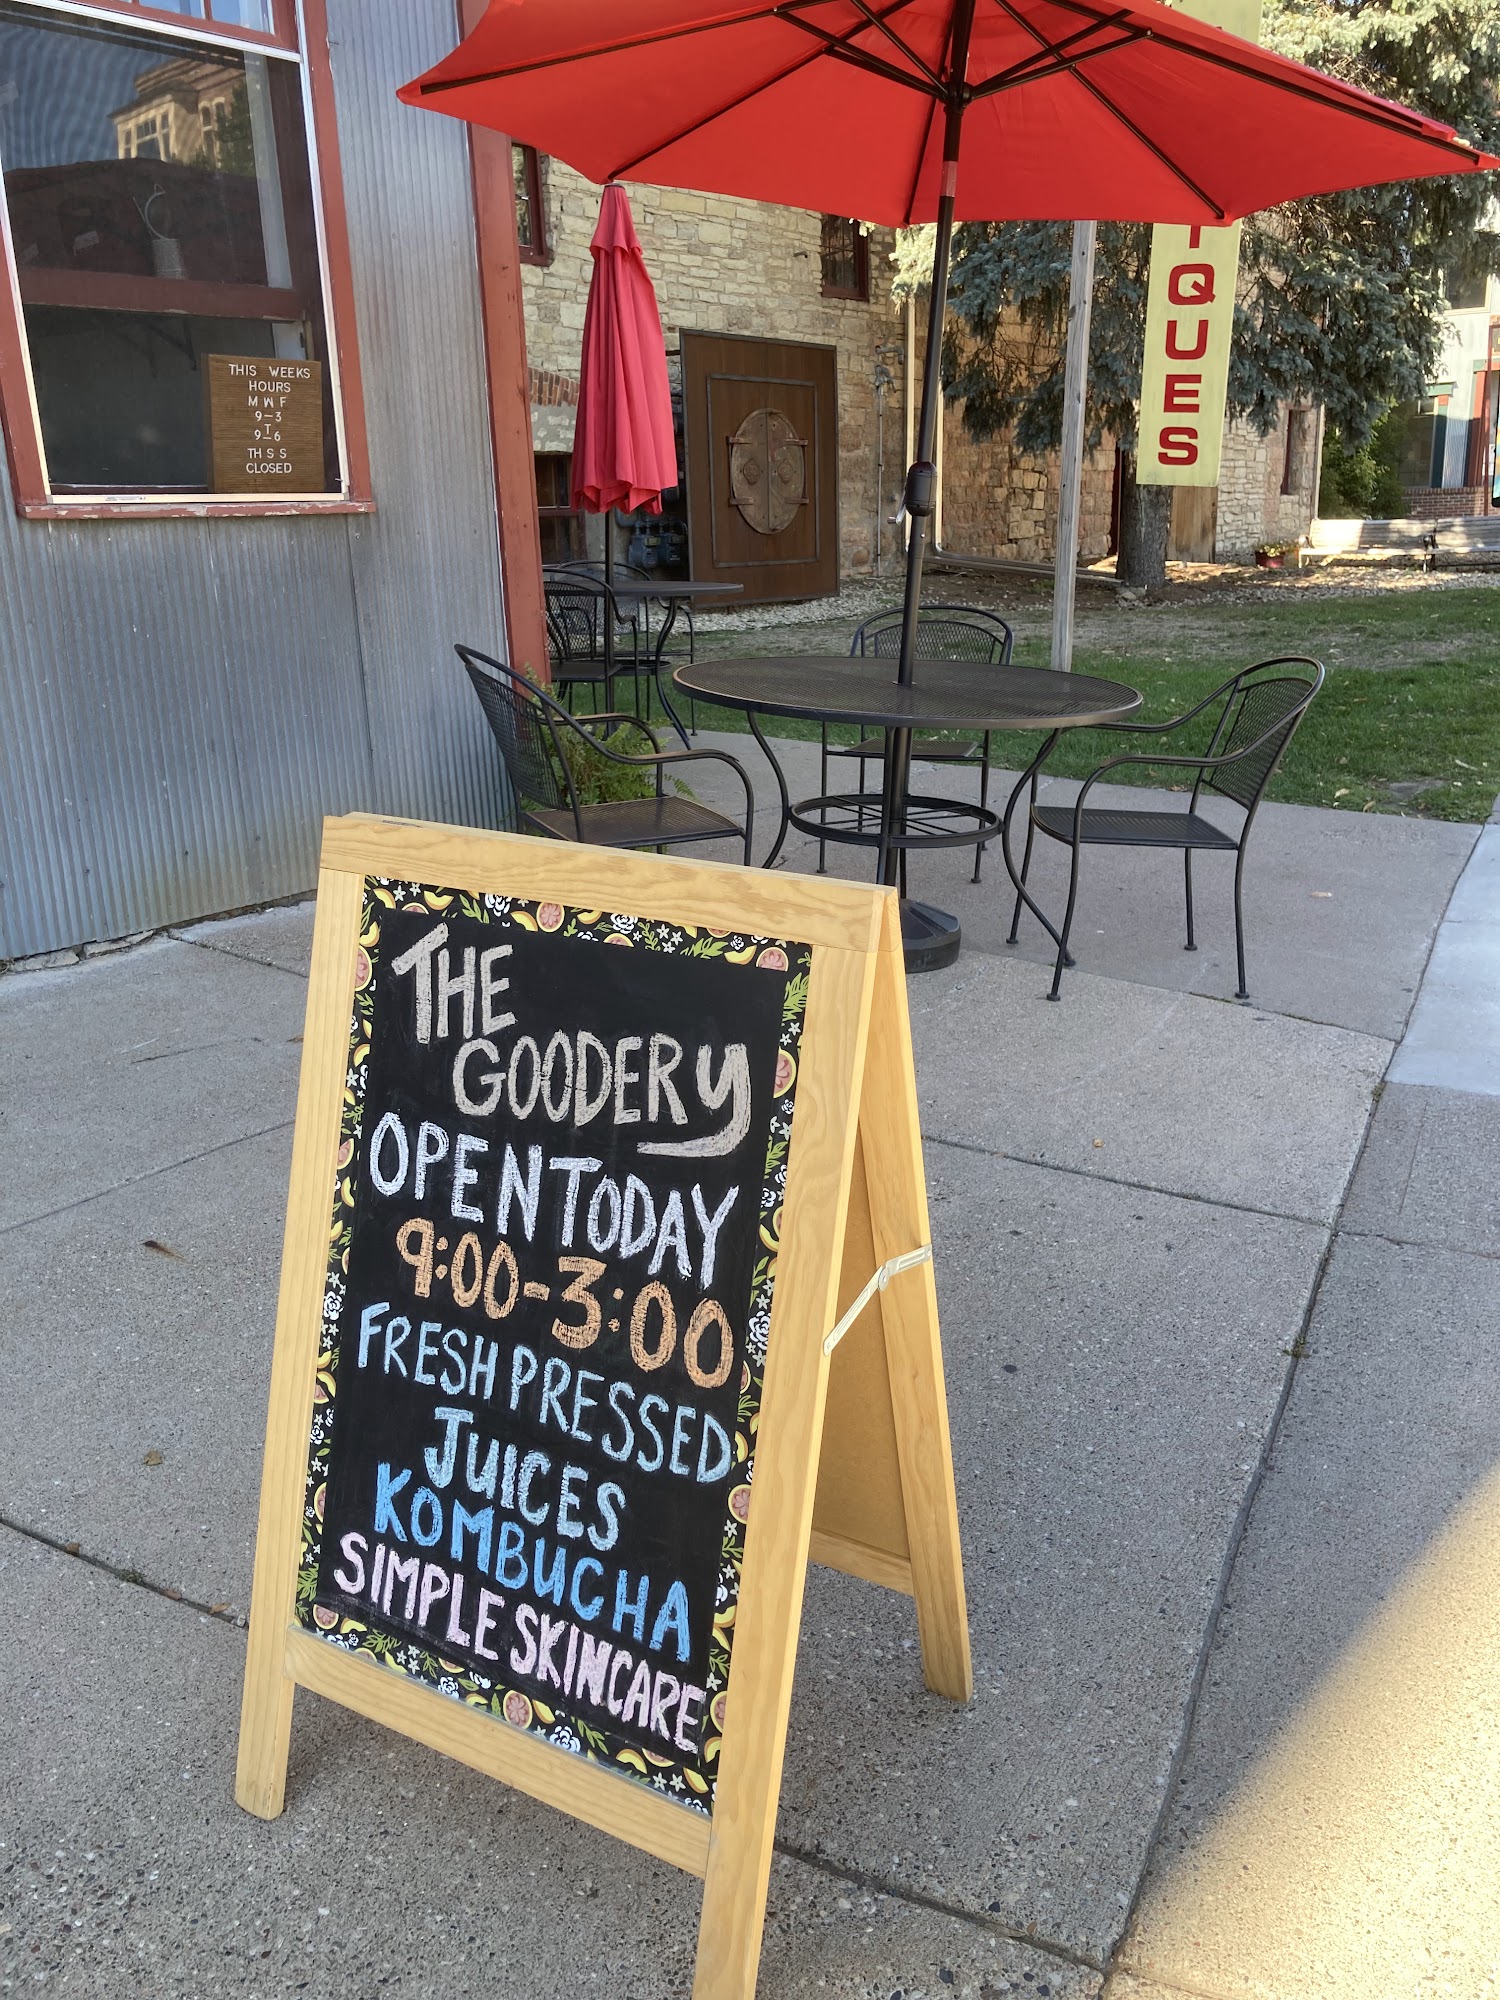 THIS WEEKS
HOURS
M W F
9-3
T
9-6
TH S S
CLOSED
IQUES
THE
GOODERY
OPEN TODAY
9:00-3:00
FRESH PRESSED
JUICES
KOMBUCHA
SIMPLE SKINCARE